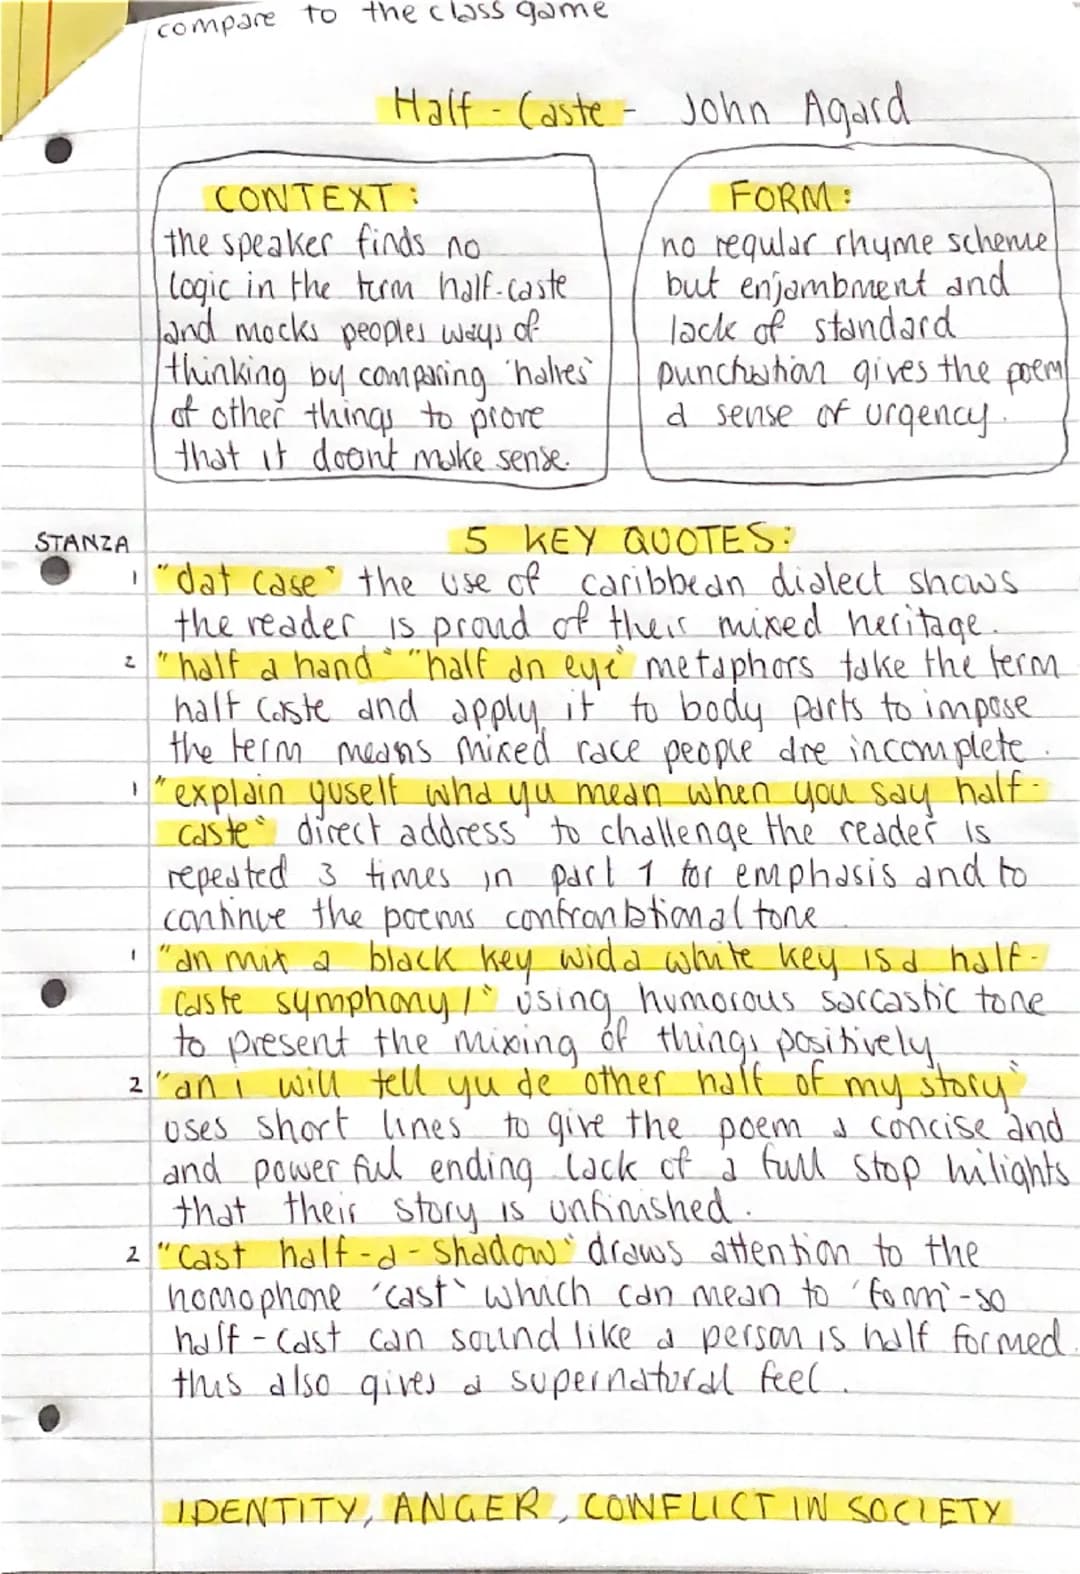 compare to the class game
Half - Caste - John Agard
CONTEXT :
the speaker finds no
logic in the term half-caste
and mocks peoples ways of
thinking by comparing 'halves'
of other things to prove
that it doont make sense.
FORM :
no regular rhyme scheme
but enjambment and
lack of standard
punctuation gives the poem
a sense of urgency.
STANZA
5 KEY QUOTES:
1 "dat case" the use of caribbean dialect shows
the reader is proud of their mixed heritage.
2 "half a hand" "half an eye" metaphors take the term
half caste and apply it to body parts to impose
the term means mixed race people are incomplete.
1 "explain yuself wha yu mean when you say half-
caste" direct address to challenge the reader is
repeated 3 times in part 1 for emphasis and to
continue the poems confrontational tone
1 "an mix a black key wid a white key is a half-
caste symphony/" using humorous sarcastic tone
to present the mixing of things positively
2 "an i will tell yu de other half of my story"
uses short lines to give the poem a concise and
and powerful ending. lack of a full stop hilights
that their story is unfinished.
2 "cast half-a-shadow" draws attention to the
homophone 'cast' which can mean to 'form'-so
half-cast can sound like a person is half formed.
this also gives a supernatural feel.
IDENTITY, ANGER, CONFLICT IN SOCIETY